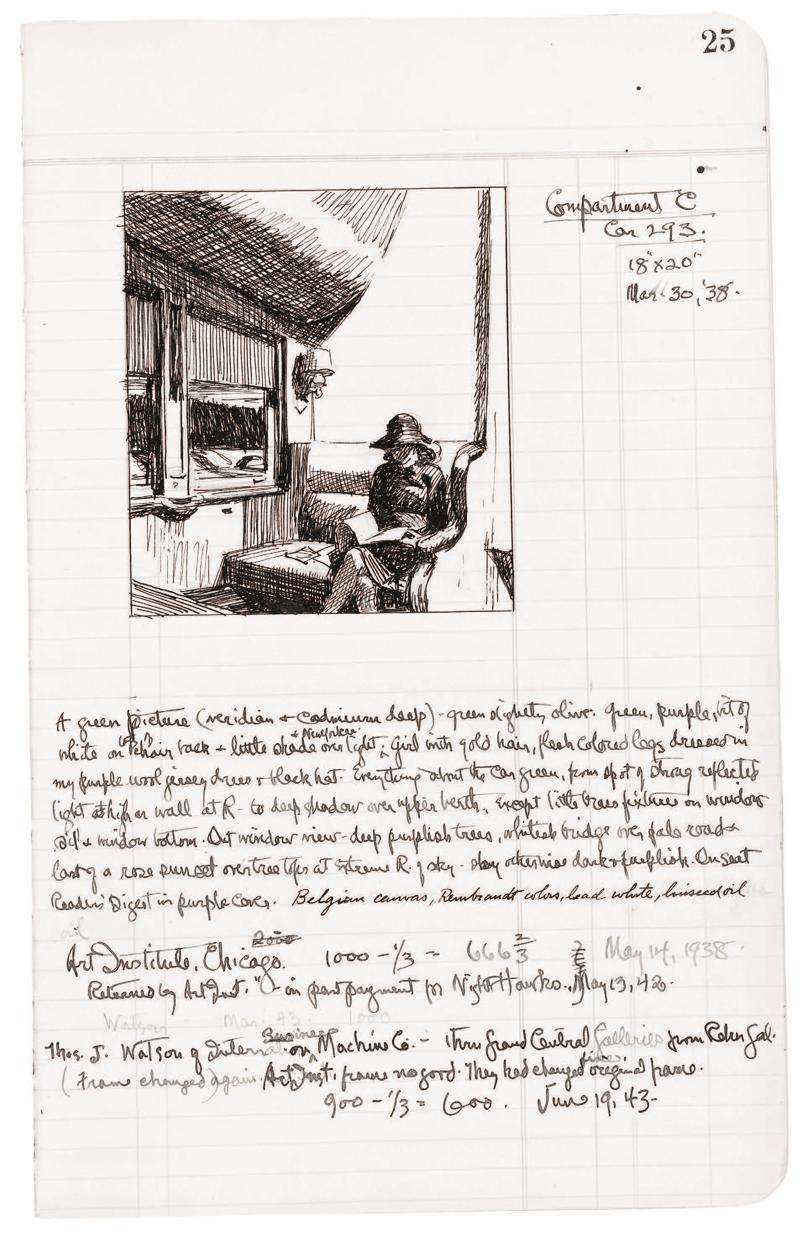 25
Compartment C
Car 293.
18"x20"
Mar. 30, '38.
A green picture (veridian + Cadmium deep) - green slightly olive. Green, purple, bit of
white on chair back + little shade over light, + New Yorker. Girl with gold hair, flesh colored legs dressed in
my purple wool jersey dress + black hat. Everything about the Car green, from spot of strong reflected
light at high on wall at R - to deep shadow over upper berth. Except little brass fixtures on window
sill + window bottom. Out window view - deep purplish trees, whitish bridge over pale road +
last of a rose sunset over tree tops at extreme R. of sky - sky otherwise dark + purplish. On seat
Readers Digest in purple cover. Belgian canvas, Rembrandt colors, lead white, linseed oil
2000
Art Institute, Chicago. 1000 - 1/3 = 666 2/3 May 14, 1938.
Returned by Art Inst. - in part payment for Night Hawks. May 13, 42.
Watson - Mar. 43. 1000
Business
Thos. J. Watson of Machine Co. - thru Grand Central Galleries from Rehn Gal.
(Frame changed) again. Art Inst. frame no good. They had changed fine original frame.
900 - 1/3 = 600. June 19, 43-